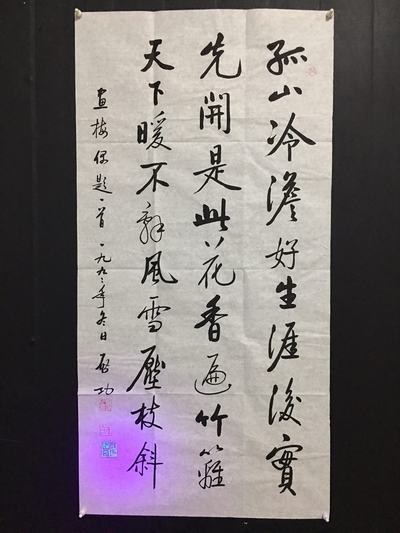 孤山冷澹好生涯後實
先開是此花香遍竹籬
天下暖不辭風雪壓枝斜
畫梅偶題一首一九九二年冬日啟功